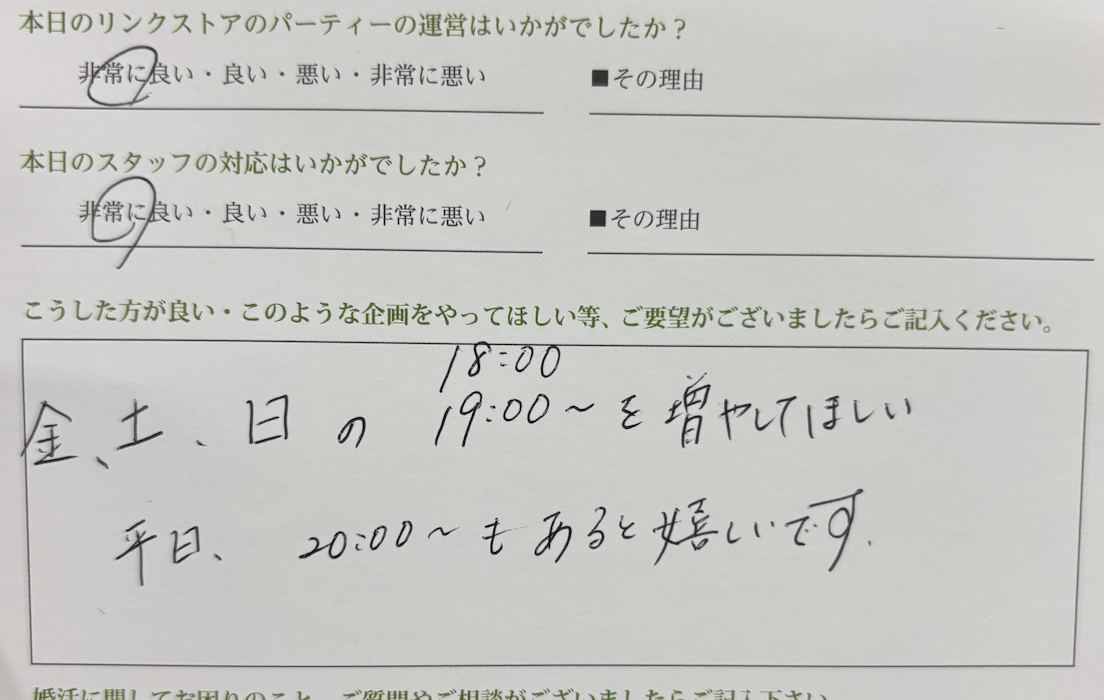 本日のリンクストアのパーティーの運営はいかがでしたか？
非常に良い・良い・悪い・非常に悪い
■その理由
本日のスタッフの対応はいかがでしたか？
非常に良い・良い・悪い・非常に悪い
■その理由
こうした方が良い・このような企画をやってほしい等、ご要望がございましたらご記入ください。
18:00
金、土、日の 19:00～を増やしてほしい
平日、20:00～もあると嬉しいです.
婚活に関してお困りのこと、ご質問やご相談がございましたらご記入下さい